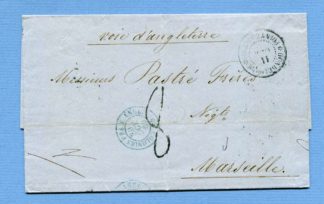 voie d'angleterre
Messieurs Pastré Frères
Négts
Marseille.